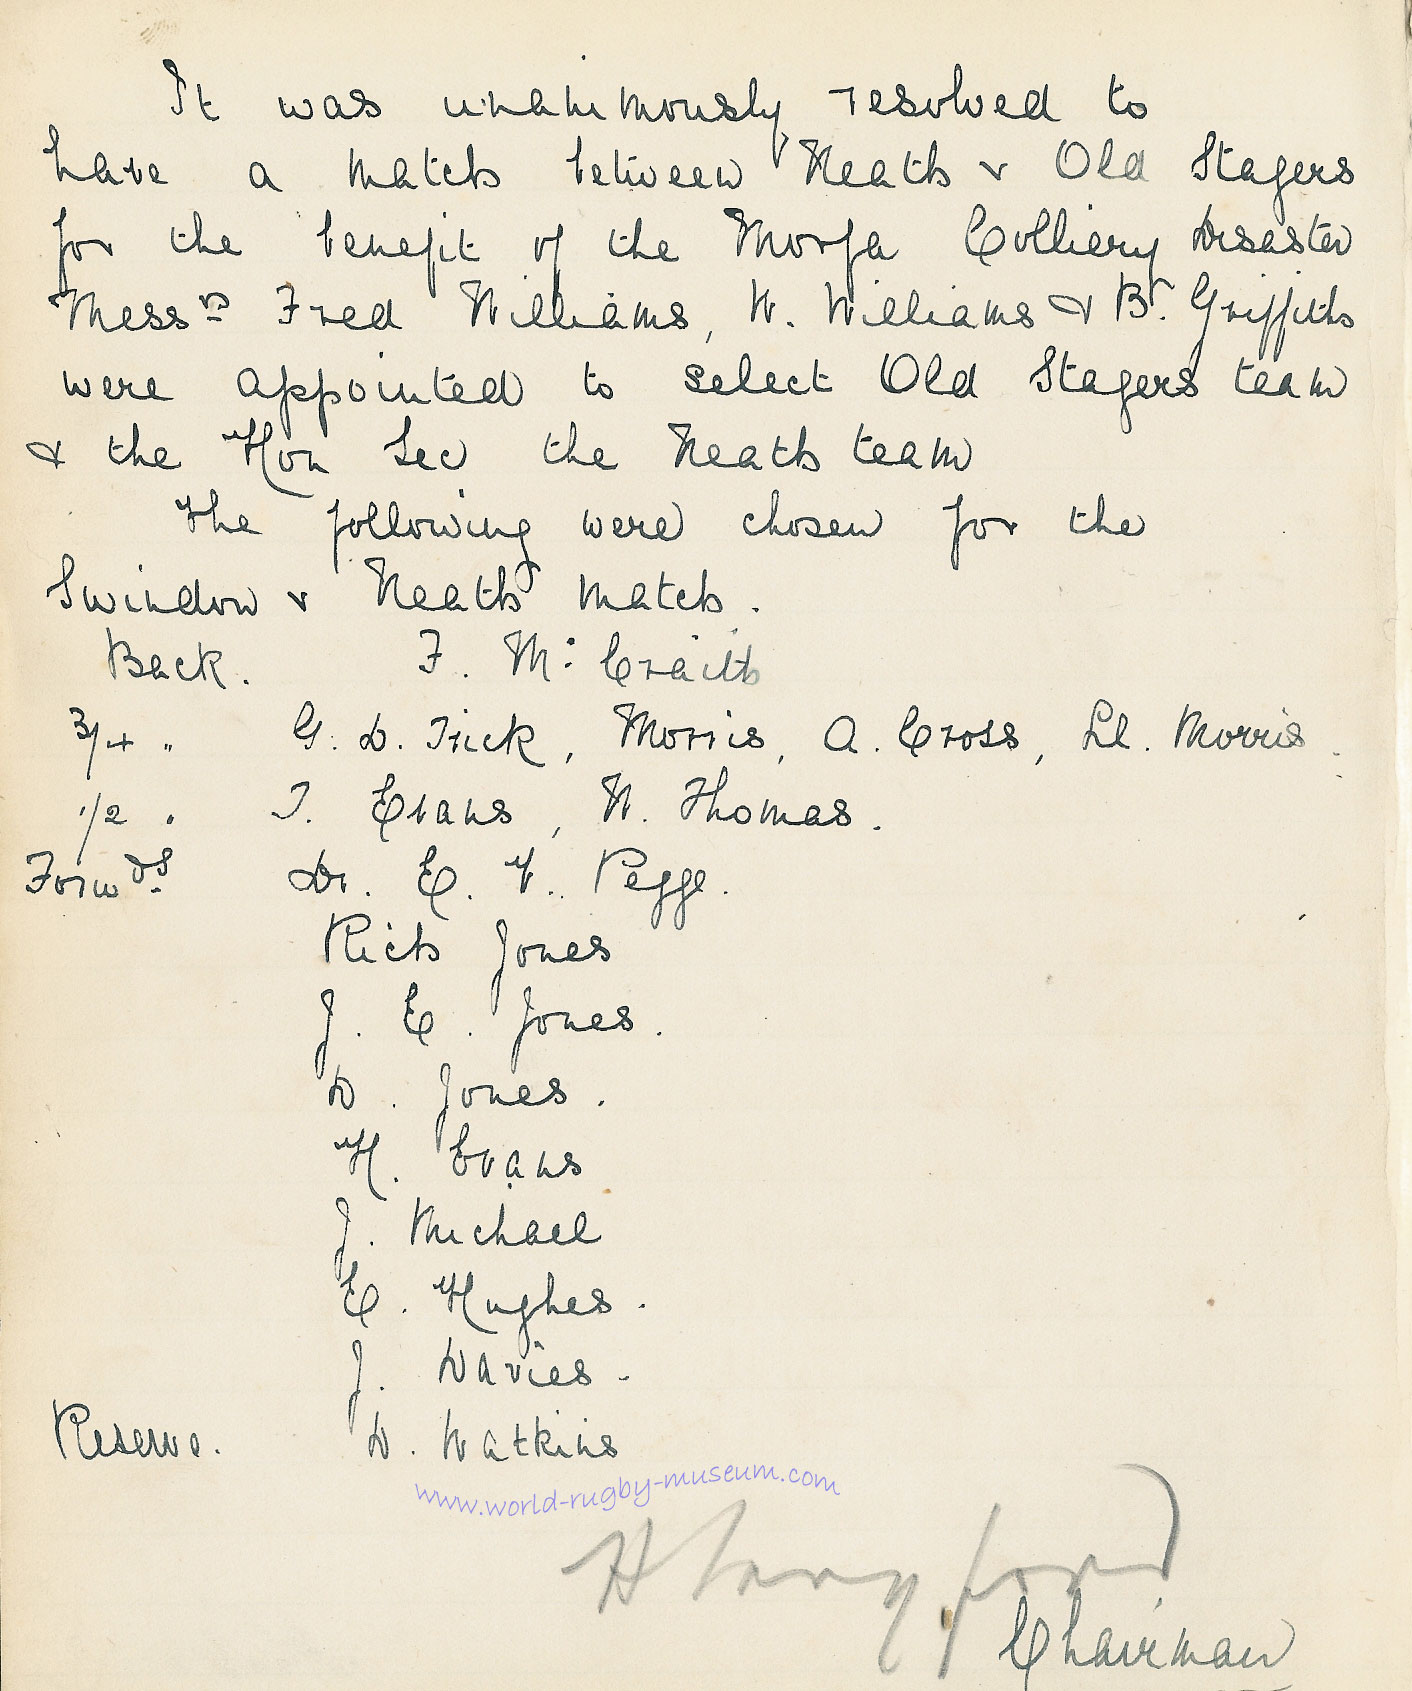 It was unanimously resolved to
have a match between Neath v Old Stagers
for the benefit of the Morfa Colliery Disaster
Messrs Fred Williams, W. Williams & B. Griffiths
were appointed to select Old Stagers team
& the Hon Sec the Neath team
The following were chosen for the
Swindon v Neath match.
Back. F. Mc Craith
3/4 " G. D. Trick, Morris, A. Cross, Ll. Morris.
1/2 " T. Evans, W. Thomas.
Forwds Dr. E. V. Pegge.
Rich Jones
J. E. Jones.
D. Jones.
H. Evans
J. Michael
E. Hughes.
J. Davies.
Reserve. D. Watkins
www.world-rugby-museum.com
Chairman